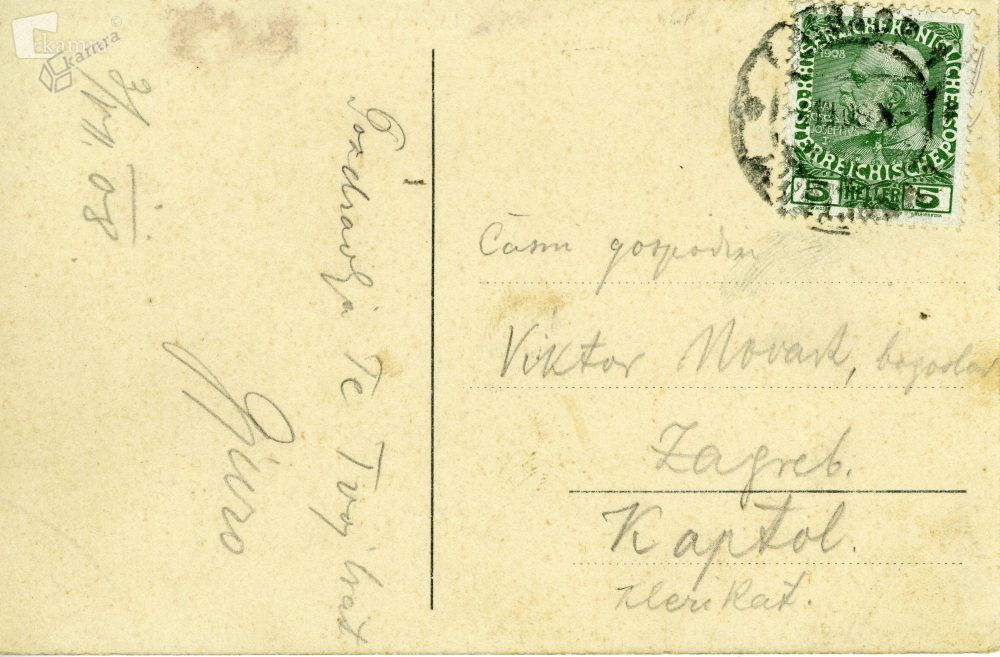 kamra
Pozdravlja Te Tvoj brat
Gjuro
08
Časni gospodin
Viktor Novak, bogoslov
Zagreb.
Kaptol.
Klerikat.
KAISERLICHE KÖNIGLICHE ÖSTERREICHISCHE POST
1908
5 HELLER 5